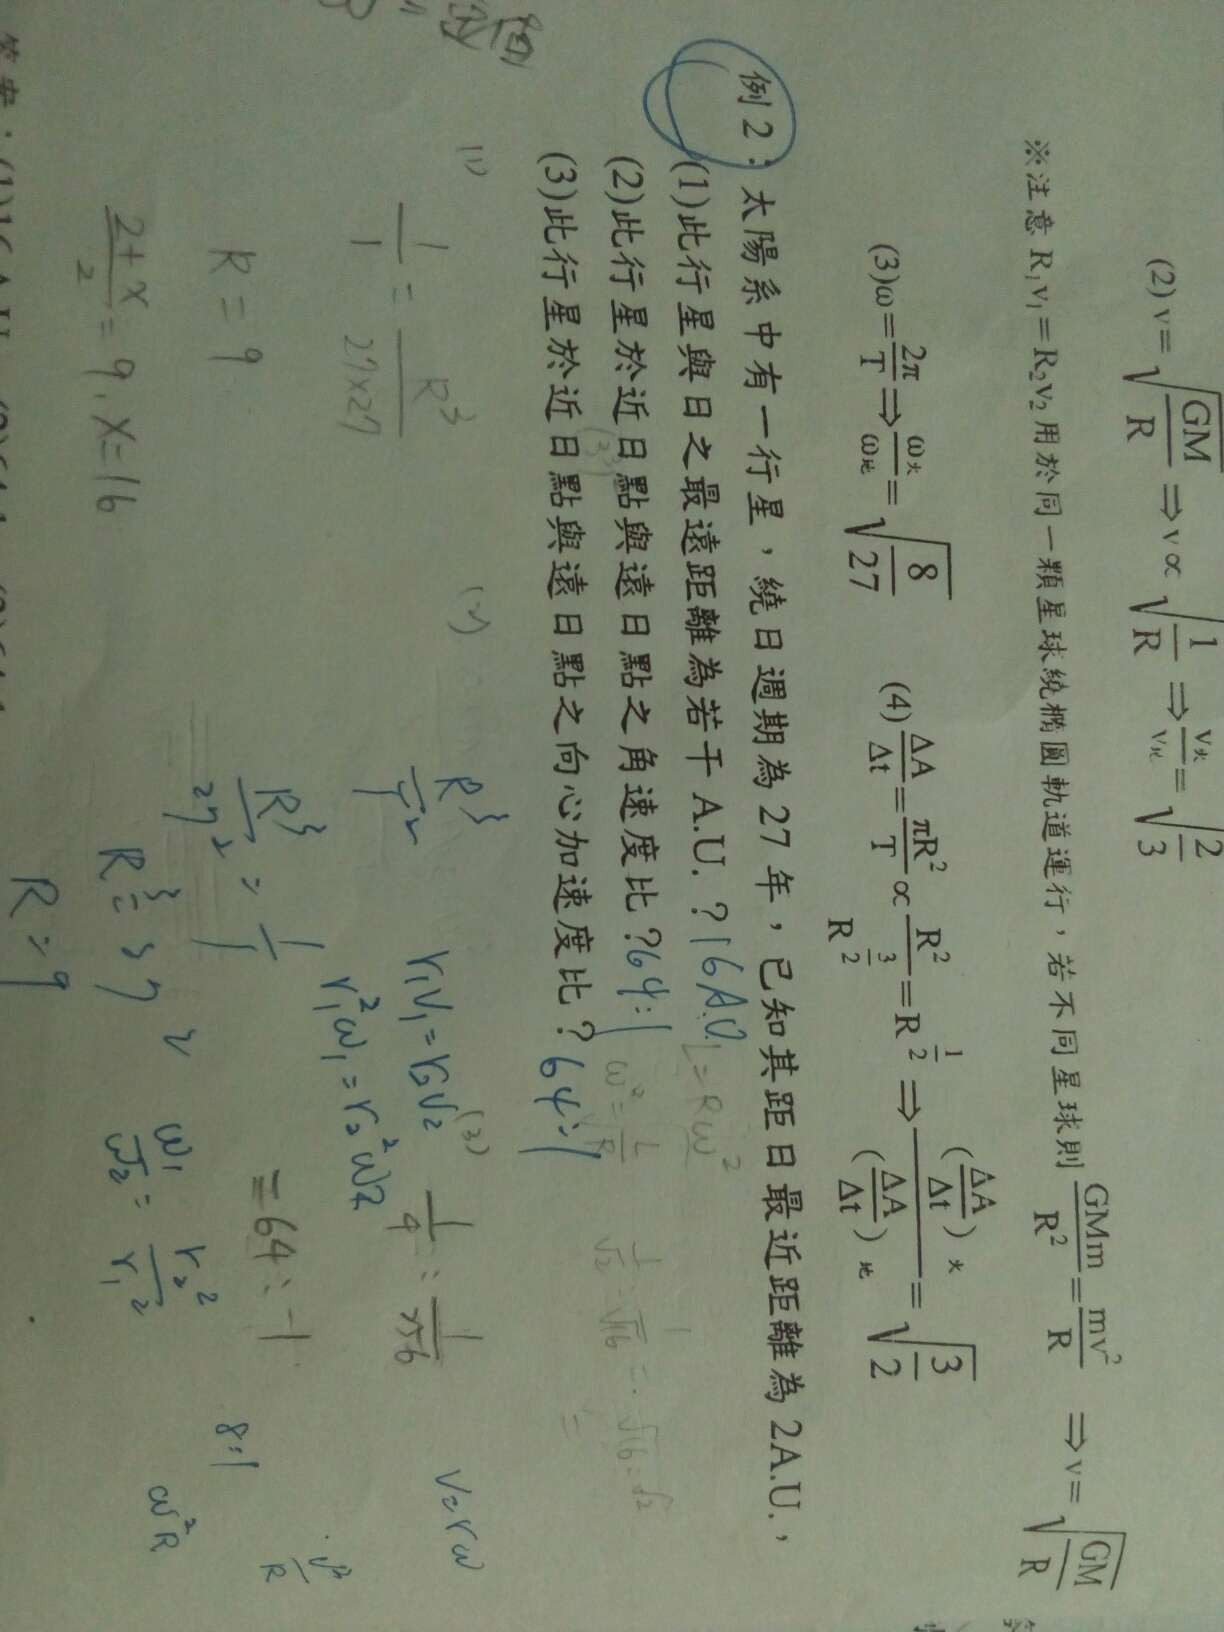 (2) v=√(GM/R) ⇒ v∝√(1/R) ⇒ v火/v地=√(2/3)
※注意 R₁v₁=R₂v₂ 用於同一顆星球繞橢圓軌道運行，若不同星球則 GMm/R²=mv²/R ⇒ v=√(GM/R)
(3)ω=2π/T ⇒ ω火/ω地=√(8/27) (4)ΔA/Δt=πR²/T∝R²/R^(3/2)=R^(1/2) ⇒ (ΔA/Δt)火/(ΔA/Δt)地=√(3/2)
例2：太陽系中有一行星，繞日週期為27年，已知其距日最近距離為2A.U.，
(1)此行星與日之最遠距離為若干A.U.？16A.U.
(2)此行星於近日點與遠日點之角速度比？64:1
(3)此行星於近日點與遠日點之向心加速度比？64:1
L=Rω²
(1)
1/1=R³/27×27
R=9
(2+x)/2=9, x=16
(2)
R³/T²
R³/27²=1/1
R³=27²
R=9
r₁v₁=r₂v₂
r₁²ω₁=r₂²ω₂
ω₁/ω₂=r₂²/r₁²
(3)
1/4:1/256
=64:1
v=rω
8:1
v²/R
ω²R